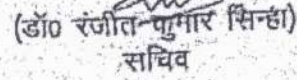 (डॉ0 रंजीत कुमार सिन्हा)
सचिव